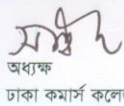 অধ্যক্ষ
ঢাকা কমার্স কলে